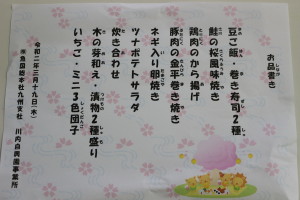 お品書き
豆ご飯・巻き寿司2種、
鮭の桜風味焼き
鶏肉のから揚げ
豚肉の金平巻き焼き
ネギ入り卵焼き
ツナポテトサラダ
炊き合わせ
木の芽和え・漬物2種盛り
いちご・ミニ3色団子
令和二年三月十九日(木)
㈱魚国総本社九州支社
川内自興園事業所